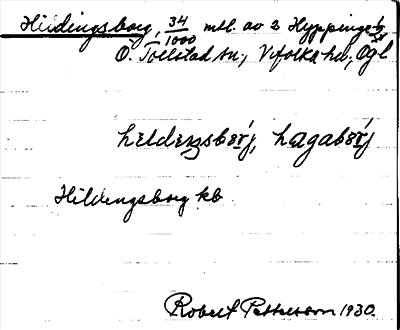 Hildingsborg, 34/1000 mtl. av 2 Hyppinge
Ö. Tollstad sn., Vifolka hd., Ögl
hıldeŋsbɵrj, hagabɵrj
Hildengsborg kb
Robert Pettersson 1930.